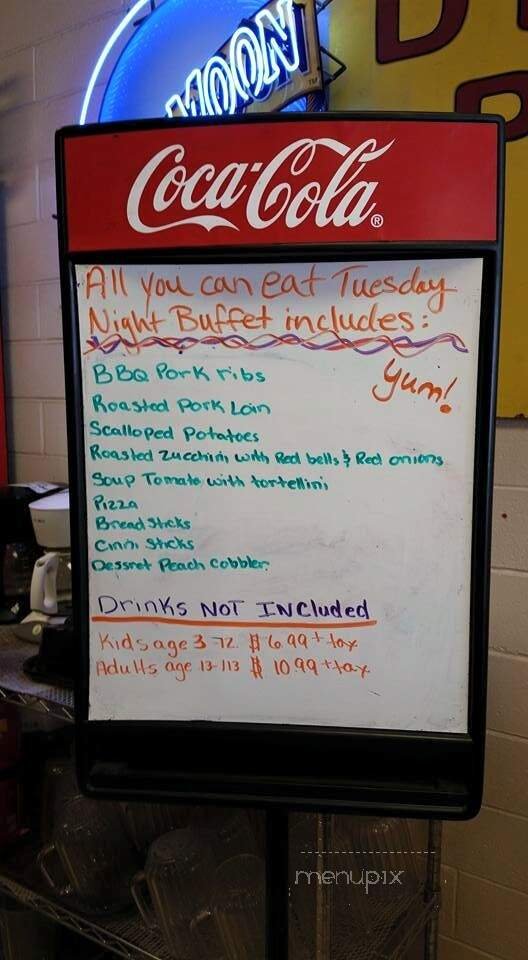 MOON
TM
Coca-Cola®
All you can eat Tuesday
Night Buffet includes:
Yum!
BBQ Pork ribs
Roasted Pork Loin
Scalloped Potatoes
Roasted Zucchini with Red bells & Red onions
Soup Tomato with tortellini
Pizza
Bread Sticks
Cinni Sticks
Dessret Peach Cobbler
Drinks NOT INCluded
Kids age 3-12 $ 6.99 + tax
Adults age 13-113 $ 10.99 + tax
menupix